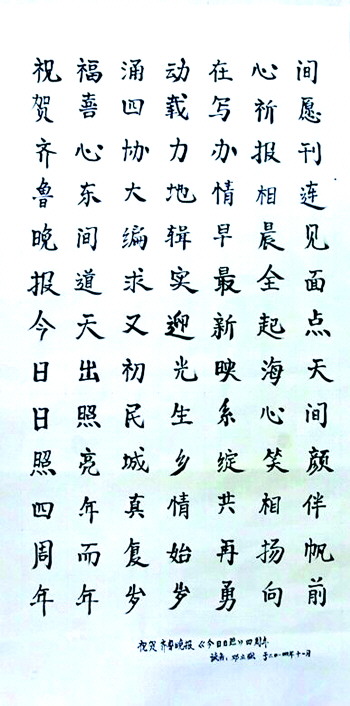 祝福涌动在心间
贺喜四载写祈愿
齐心协力办报刊
鲁东大地情相连
晚间编辑早晨见
报道求实最全面
今天又迎新起点
日出初光映海天
日照民生系心间
照亮城乡绽笑颜
四年真情共相伴
周而复始再扬帆
年年岁岁勇向前
祝贺齐鲁晚报《今日日照》四周年
读者：